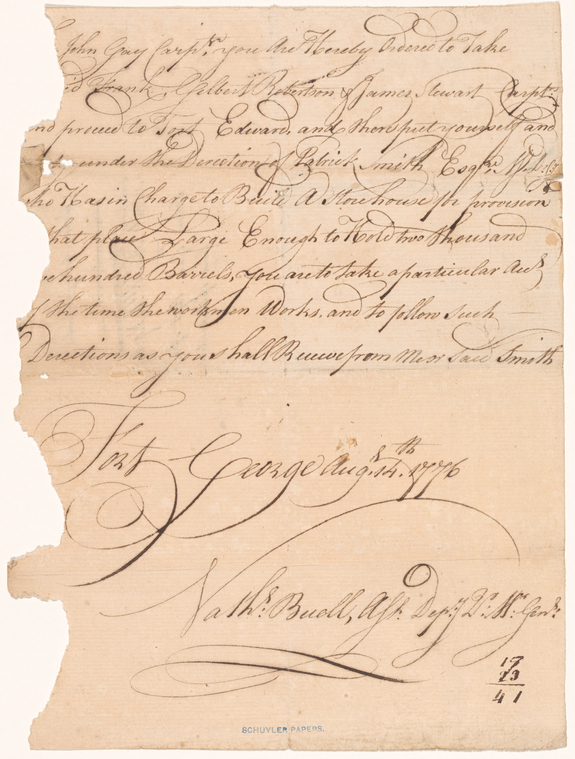 John Gay Carpr. you Are Hereby Ordered to Take
Frank Gilbert Robertson & James Stewart Carptrs
and proceed to Fort Edward, and there put yourself and
under the Derection of Patrick Smith Esqr.
who Has in Charge to Build A Storehouse for provision
that place Large Enough to Hold two thousand
hundred Barrels, you are to take a particular Acct
of the time the workmen Works, and to follow such
Derections as you shall Receive from me or said Smith
Fort George Augst. 14th. 1776
Nathl. Buell, Asst. Depy. Qr. Mr. Genl.
17
23
41
SCHUYLER PAPERS.